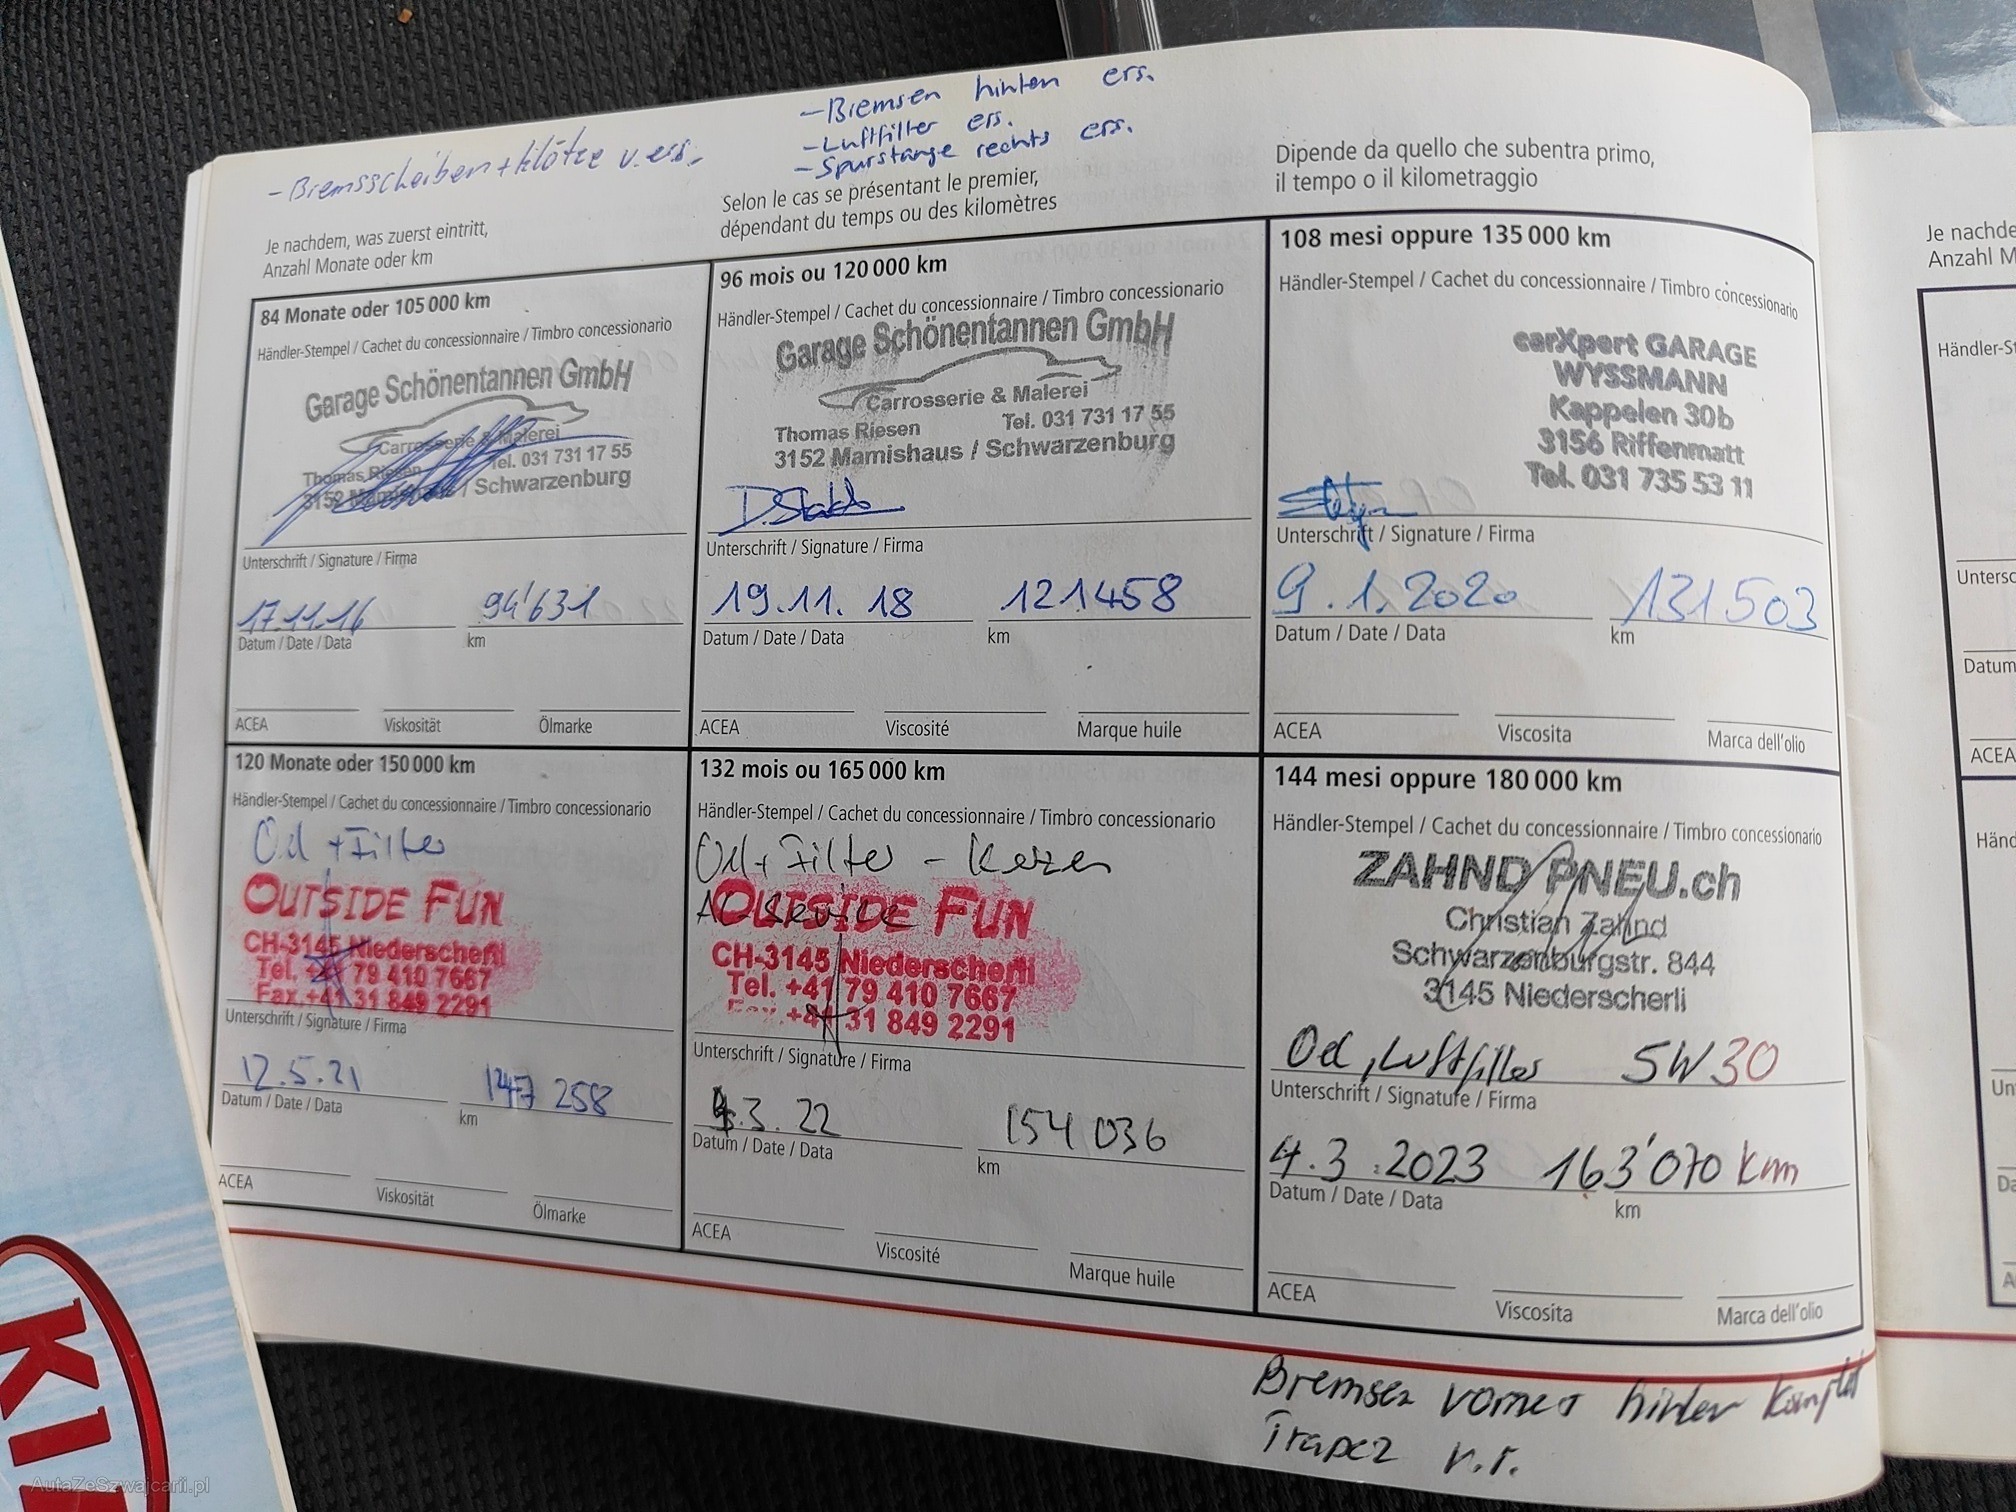 - Bremsscheiben + klötze v. ers.
- Bremsen hinten ers.
- Luftfilter ers.
- Spurstange rechts ers.
Je nachdem, was zuerst eintritt,
Anzahl Monate oder km
Selon le cas se présentant le premier,
dépendant du temps ou des kilomètres
Dipende da quello che subentra primo,
il tempo o il kilometraggio
84 Monate oder 105 000 km
Händler-Stempel / Cachet du concessionnaire / Timbro concessionario
Garage Schönentannen GmbH
Carrosserie & Malerei
Thomas Riesen Tel. 031 731 17 55
3152 Mamishaus / Schwarzenburg
Unterschrift / Signature / Firma
17.11.16 94'631
Datum / Date / Data km
ACEA Viskosität Ölmarke
96 mois ou 120 000 km
Händler-Stempel / Cachet du concessionnaire / Timbro concessionario
Garage Schönentannen GmbH
Carrosserie & Malerei
Thomas Riesen Tel. 031 731 17 55
3152 Mamishaus / Schwarzenburg
Unterschrift / Signature / Firma
19.11.18 121458
Datum / Date / Data km
ACEA Viscosité Marque huile
108 mesi oppure 135 000 km
Händler-Stempel / Cachet du concessionnaire / Timbro concessionario
carXpert GARAGE
WYSSMANN
Kappelen 30b
3156 Riffenmatt
Tel. 031 735 53 11
Unterschrift / Signature / Firma
9.1.2020 131503
Datum / Date / Data km
ACEA Viscosita Marca dell'olio
120 Monate oder 150 000 km
Händler-Stempel / Cachet du concessionnaire / Timbro concessionario
Oel + Filter
OUTSIDE FUN
CH-3145 Niederscherli
Tel. +41 79 410 7667
Fax.+41 31 849 2291
Unterschrift / Signature / Firma
12.5.21 147 258
Datum / Date / Data km
ACEA Viskosität Ölmarke
132 mois ou 165 000 km
Händler-Stempel / Cachet du concessionnaire / Timbro concessionario
Oel + Filter - Kerzen
AC-Service
OUTSIDE FUN
CH-3145 Niederscherli
Tel. +41 79 410 7667
Fax.+41 31 849 2291
Unterschrift / Signature / Firma
3. 22 154 036
Datum / Date / Data km
ACEA Viscosité Marque huile
144 mesi oppure 180 000 km
Händler-Stempel / Cachet du concessionnaire / Timbro concessionario
ZAHND PNEU.ch
Christian Zahnd
Schwarzenburgstr. 844
3145 Niederscherli
Oel, Luftfilter 5W30
Unterschrift / Signature / Firma
4.3.2023 163'070 km
Datum / Date / Data km
ACEA Viscosita Marca dell'olio
Bremsen vorne + hinten komplet
Trapez v.r.
Je nachde
Anzahl M
Händler-S
Untersc
Datum
ACEA
Händ
Un
Da
A
KI
AutaZeSzwajcarii.pl